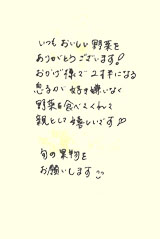 いつもおいしい野菜を
ありがとうございます!
おかげ様で2才半になる
息子が好き嫌いなく
野菜を食べてくれて
親として嬉しいです♡
旬の果物を
お願いします